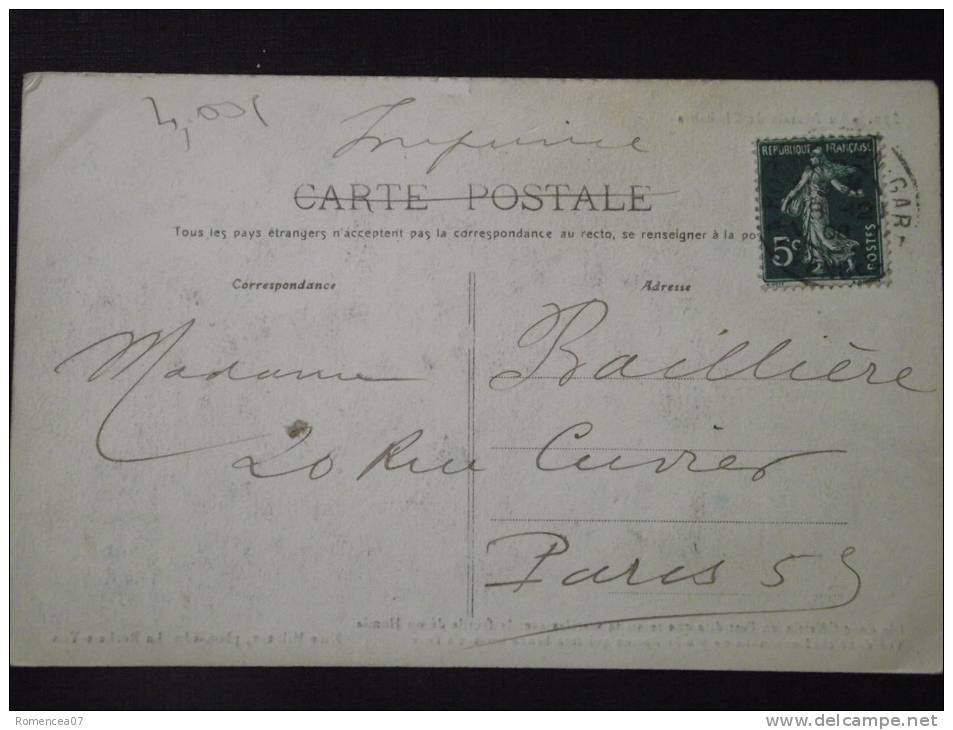 Imprimé
CARTE POSTALE
Tous les pays étrangers n'acceptent pas la correspondance au recto, se renseigner à la
Correspondance
Adresse
REPUBLIQUE FRANÇAISE
5c
POSTES
GARE
Madame Baillière
20 Rue Cuvier
Paris 5e
Romencea07
www.delcampe.net